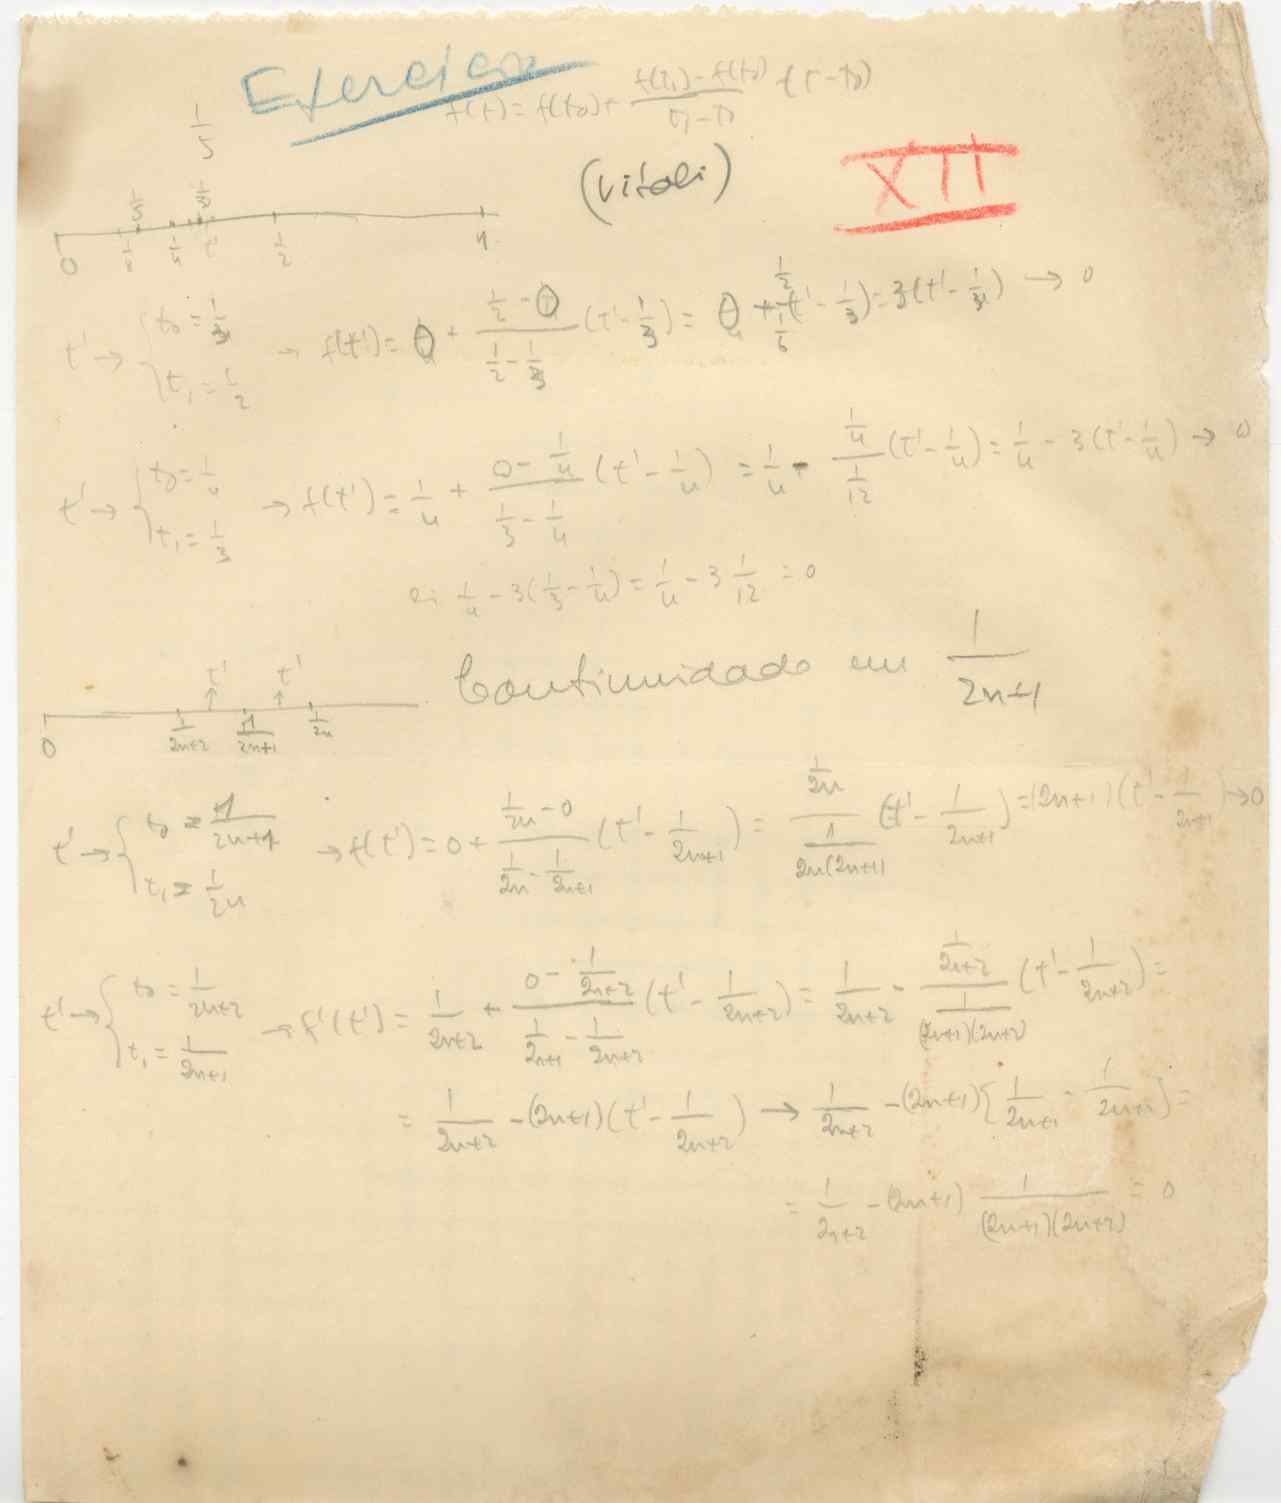 Exercício
f(t) = f(t₀) + (f(t₁) - f(t₀))/(t₁ - t₀) · (t - t₀)
1/5
(Vitali)
XII
1/5 1/3
0 1/6 1/4 t' 1/2 1
t' → { t₀ = 1/3, t₁ = 1/2 → f(t') = 0 + (1/2 - 0)/(1/2 - 1/3) (t' - 1/3) = 0 + (1/2)/(1/6) (t' - 1/3) = 3(t' - 1/3) → 0
t' → { t₀ = 1/4, t₁ = 1/3 → f(t') = 1/4 + (0 - 1/4)/(1/3 - 1/4) (t' - 1/4) = 1/4 - (1/4)/(1/12) (t' - 1/4) = 1/4 - 3(t' - 1/4) → 0
1/4 - 3(1/3 - 1/4) = 1/4 - 3 1/12 = 0
Continuidade em 1/(2n+1)
t' t'
0 1/(2n+2) 1/(2n+1) 1/2n
t' → { t₀ = 1/(2n+1), t₁ = 1/2n → f(t') = 0 + (1/2n - 0)/(1/2n - 1/(2n+1)) (t' - 1/(2n+1)) = (1/2n)/(1/(2n(2n+1))) (t' - 1/(2n+1)) = (2n+1)(t' - 1/(2n+1)) → 0
t' → { t₀ = 1/(2n+2), t₁ = 1/(2n+1) → f'(t') = 1/(2n+2) + (0 - 1/(2n+2))/(1/(2n+1) - 1/(2n+2)) (t' - 1/(2n+2)) = 1/(2n+2) - (1/(2n+2))/(1/((2n+1)(2n+2))) (t' - 1/(2n+2)) =
= 1/(2n+2) - (2n+1)(t' - 1/(2n+2)) → 1/(2n+2) - (2n+1)[1/(2n+1) - 1/(2n+2)] =
= 1/(2n+2) - (2n+1) 1/((2n+1)(2n+2)) = 0